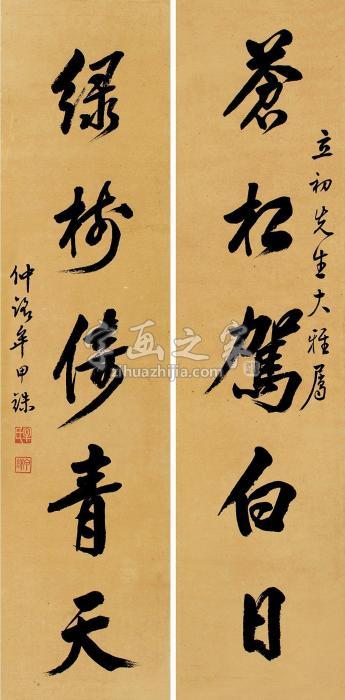 蒼松駕白日
立初先生大雅屬
綠樹倚青天
仲詻牟甲銖
字画之家
zihuazhijia.com